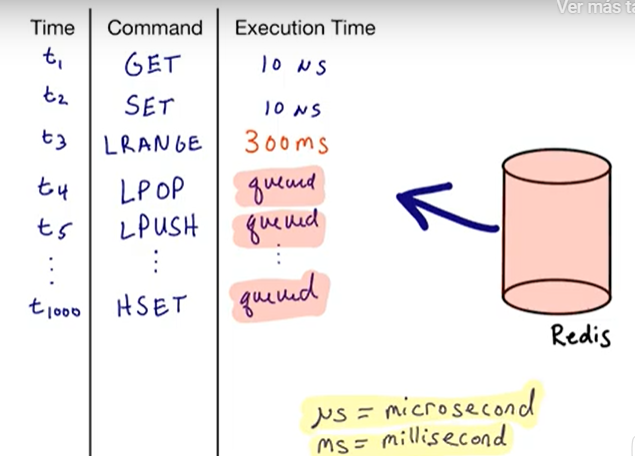 Ver más ta
Time Command Execution Time
t1 GET 10 µs
t2 SET 10 µs
t3 LRANGE 300ms
t4 LPOP queued
t5 LPUSH queued
⋮ ⋮ ⋮
t1000 HSET queued
Redis
µs = microsecond
ms = millisecond